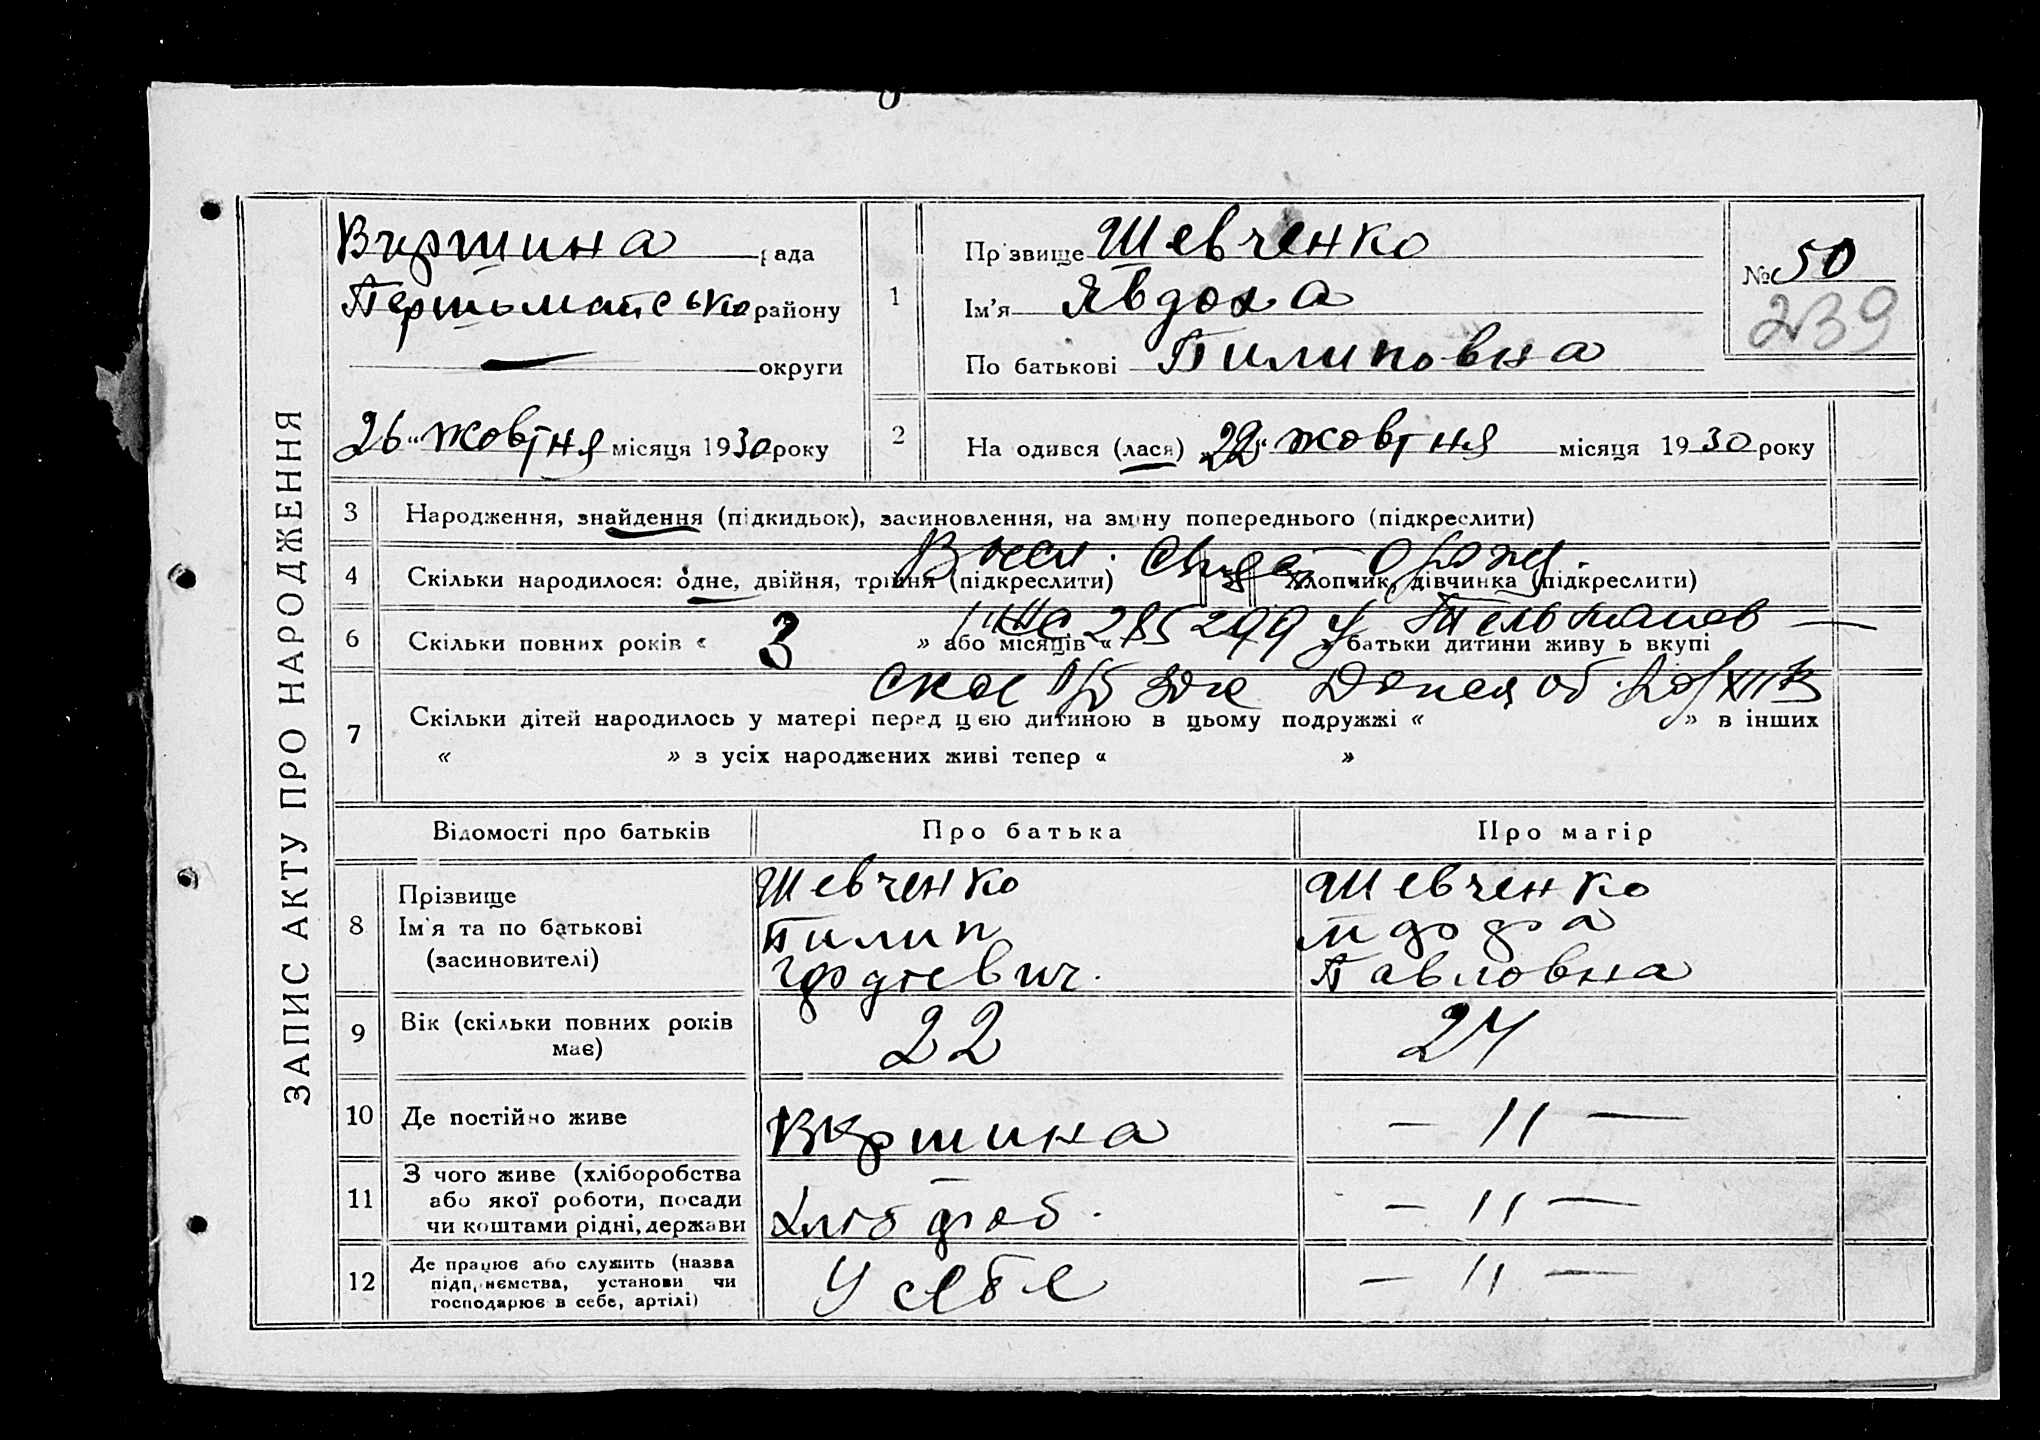 ЗАПИС АКТУ ПРО НАРОДЖЕННЯ
Вершина рада
району
округи
26 " жовтня місяця 1930 року
1
Прізвище Шевченко
Ім'я Явдоха
По батькові Пилиповна
№ 50
239
2
На одився (лася) 22 " жовтня місяця 1930 року
3
Народження, знайдення (підкидьок), засиновлення, на зміну попереднього (підкреслити)
4
Скільки народилося: одне, двійня, трійня (підкреслити)
хлопчик, дівчинка (підкреслити)
285299
6
Скільки повних років « 3 » або місяців « » батьки дитини живу ь вкупі
7
Скільки дітей народилось у матері перед цією дитиною в цьому подружжі « » в інших
« » з усіх народжених живі тепер « »
Відомості про батьків
Про батька
Про матір
8
Прізвище
Ім'я та по батькові
(засиновителі)
Шевченко
Пилип
Шевченко
Павловна
9
Вік (скільки повних років
має)
22
24
10
Де постійно живе
Вершина
— 11 —
11
З чого живе (хліборобства
або якої роботи, посади
чи коштами рідні, держави
Хлібороб.
— 11 —
12
Де працює або служить (назва
підприємства, установи чи
господарює в себе, артілі)
У себе
— 11 —